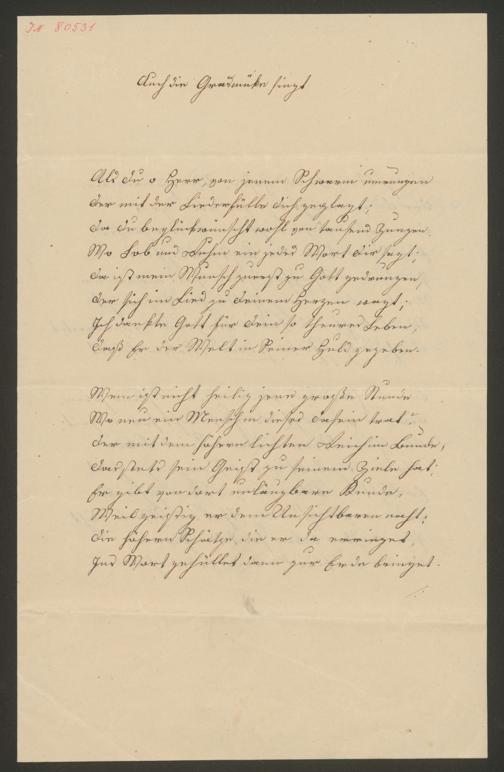 JN 80531
Auch die Grasmücke singt
Als du o Herr, von jenem Schwarm umrungen
Der mit der Liederfülle dich geplagt;
Da du beglückwünscht wohl von tausend Zungen.
Wo Lob und Ruhm ein jedes Wort dir sagt;
Da ist mein Wunsch zuerst zu Gott gedrungen,
Der sich im Lied zu deinem Herzen wagt;
Ich dankte Gott für dein so theures Leben,
Daß Er der Welt in Seiner Huld gegeben.
Wem ist nicht heilig jene große Stunde
Wo neu ein Mensch in dieses Dasein trat?
Der mit dem höhern lichten Reich im Bunde,
Das stets sein Geist zu seinem Ziele hat;
Er gibt von dort unläugbare Kunde,
Weil geistig er dem Unsichtbaren naht;
Die höhern Schätze, die er da erringet,
Ins Wort gehüllet dann zur Erde bringet.